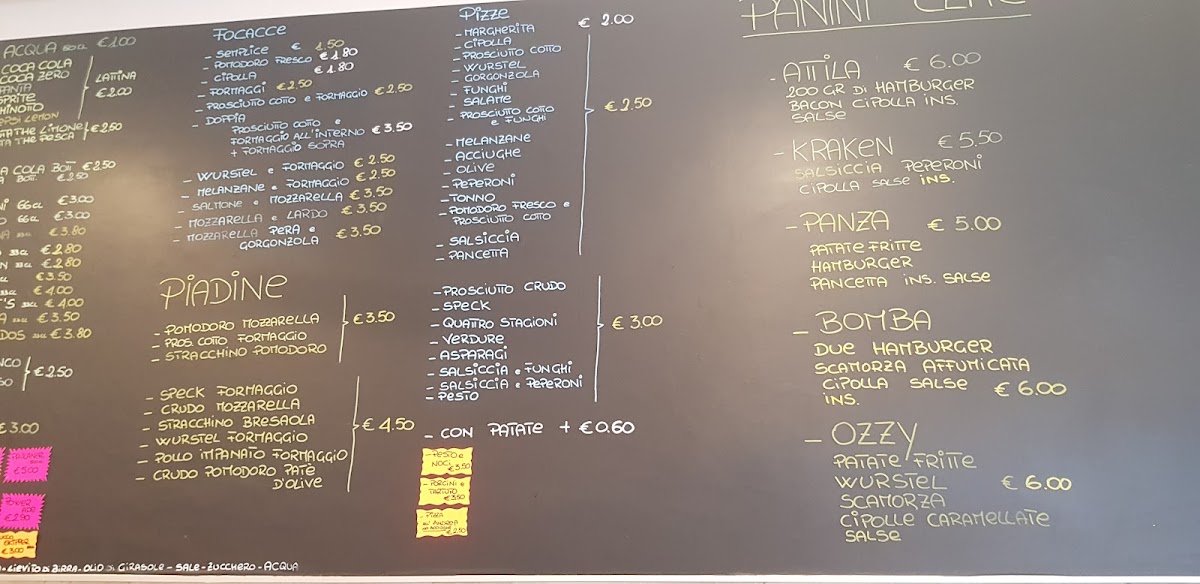 ACQUA 50 CL € 1.00
COCA COLA
COCA ZERO
FANTA
SPRITE
CHINOTTO
PEPSI LEMON
LATTINA
€ 2.00
THE LIMONE
THE PESCA
€ 2.50
COLA BOT. € 2.50
BOT. € 2.50
66 CL € 3.00
66 CL € 3.00
€ 3.80
€ 2.80
€ 2.80
€ 3.50
€ 4.00
'S € 4.00
€ 3.50
DOS € 3.80
€ 2.50
€ 3.00
€ 5.00
€ 2.50
€ 3.00
FOCACCE
- SEMPLICE € 1.50
- POMODORO FRESCO € 1.80
- CIPOLLA € 1.80
- FORMAGGI € 2.50
- PROSCIUTTO COTTO e FORMAGGIO € 2.50
- DOPPIA
PROSCIUTTO COTTO e
FORMAGGIO ALL'INTERNO € 3.50
+ FORMAGGIO SOPRA
- WURSTEL e FORMAGGIO € 2.50
- MELANZANE e FORMAGGIO € 2.50
- SALMONE e MOZZARELLA € 3.50
- MOZZARELLA e LARDO € 3.50
- MOZZARELLA PERA e
GORGONZOLA € 3.50
PIADINE
- POMODORO MOZZARELLA
- PROS. COTTO FORMAGGIO
- STRACCHINO POMODORO
€ 3.50
- SPECK FORMAGGIO
- CRUDO MOZZARELLA
- STRACCHINO BRESAOLA
- WURSTEL FORMAGGIO
- POLLO IMPANATO FORMAGGIO
- CRUDO POMODORO PATÈ
D'OLIVE
€ 4.50
Pizze
- MARGHERITA € 2.00
- CIPOLLA
- PROSCIUTTO COTTO
- WURSTEL
- GORGONZOLA
- FUNGHI
- SALAME
- PROSCIUTTO COTTO
e FUNGHI
- MELANZANE
- ACCIUGHE
- OLIVE
- PEPERONI
- TONNO
- POMODORO FRESCO e
PROSCIUTTO COTTO
- SALSICCIA
- PANCETTA
€ 2.50
- PROSCIUTTO CRUDO
- SPECK
- QUATTRO STAGIONI
- VERDURE
- ASPARAGI
- SALSICCIA e FUNGHI
- SALSICCIA e PEPERONI
- PESTO
€ 3.00
- CON PATATE + € 0.60
- PESTO e
NOCI € 3.50
- PORCINI e
TARTUFO
€ 3.50
- PIZZA
ALL'ANDREA
€ 2.50
PANINI
- ATTILA € 6.00
200 GR DI HAMBURGER
BACON CIPOLLA INS.
SALSE
- KRAKEN € 5,50
SALSICCIA PEPERONI
CIPOLLA SALSE INS.
- PANZA € 5.00
PATATE FRITTE
HAMBURGER
PANCETTA INS. SALSE
- BOMBA
DUE HAMBURGER
SCAMORZA AFFUMICATA
CIPOLLA SALSE € 6.00
INS.
- OZZY
PATATE FRITTE
WURSTEL € 6.00
SCAMORZA
CIPOLLE CARAMELLATE
SALSE
- LIEVITO DI BIRRA - OLIO DI GIRASOLE - SALE - ZUCCHERO - ACQUA